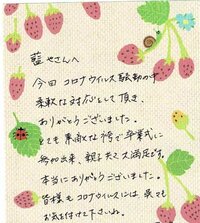 藍やさんへ
今回コロナウイルス騒動の中
柔軟な対応をして頂き、
ありがとうございました。
とても素敵な袴で卒業式に
参加出来、親子共々大満足です。
本当にありがとうございました。
皆様もコロナウイルスには呉々も
お気を付けて下さいね。